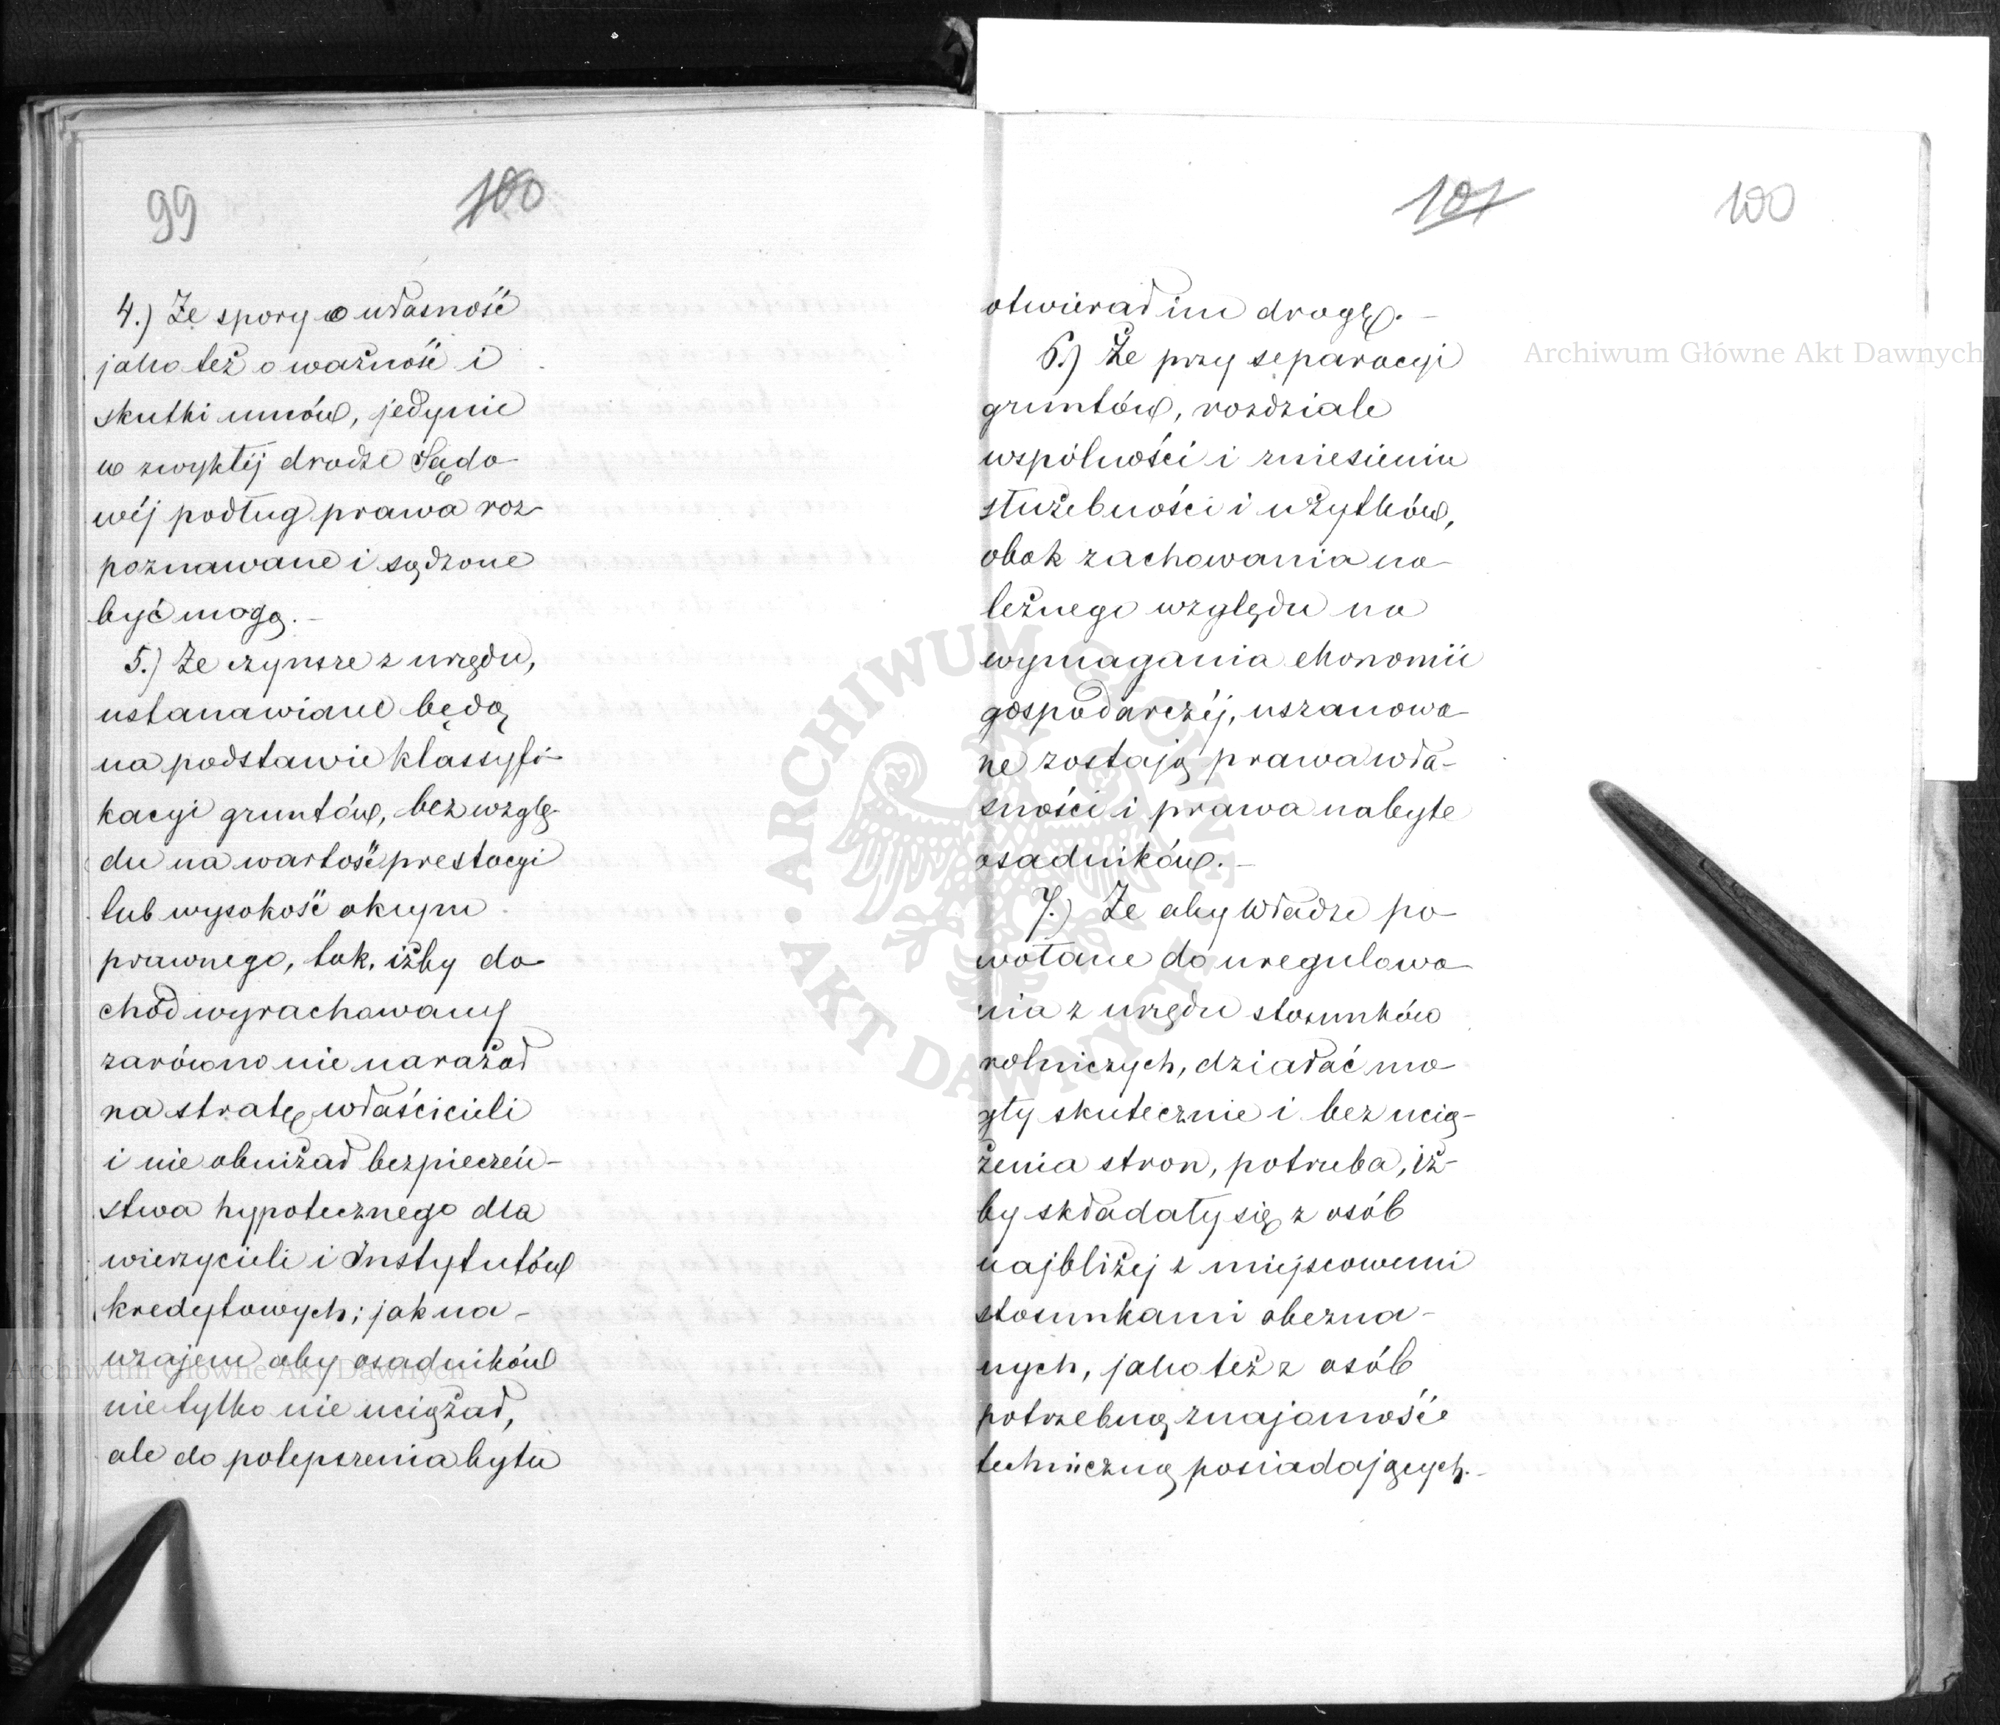 99 100
4.) Że spory o własność
jako też o ważność i
skutki umów, jedynie
w zwykłéj drodze Sądo-
wéj podług prawa roz-
poznawane i sądzone
być mogą. –
5.) Że czynsze z urzędu,
ustanawiane będą
na podstawie klassyfi-
kacyi gruntów, bez wzglę-
du na wartość prestacyi
lub wysokość okupu
prawnego, tak, iżby do-
chód wyrachowany
zarówno nie narażał
na stratę właścicieli
i nie obniżał bezpieczeń-
stwa hypotecznego dla
wierzycieli i Instytutów
kredytowych; jak na-
wzajem aby osadników
nie tylko nie uciążał,
ale do polepszenia bytu
101 100
otwierał im drogę. –
6.) Że przy separacyi
gruntów, rozdziale
wspólności i zniesieniu
służebności i użytków,
obok zachowania na-
leżnego względu na
wymagania ekonomii
gospodarczéj, uszanowa-
ne zostają prawa wła-
sności i prawa nabyte
osadników. –
7.) Że aby Władze po-
wołane do uregulowa-
nia z urzędu stosunków
rolniczych, działać mo-
gły skutecznie i bez ucią-
żenia stron, potrzeba, iż-
by składały się z osób
najbliżej z miejscowemi
stosunkami obezna-
nych, jako też z osób
potrzebną znajomość
techniczną posiadających. –
Archiwum Główne Akt Dawnych
Archiwum Główne Akt Dawnych
ARCHIWUM GŁÓWNE AKT DAWNYCH